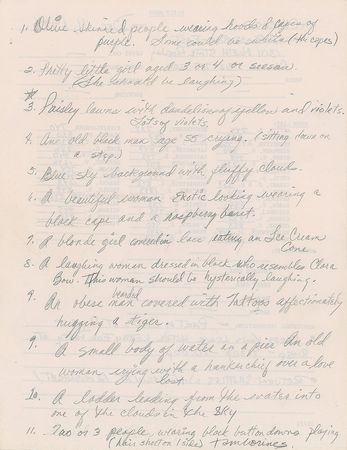 1. Olive skinned people wearing hoods & capes of
purple. Some could be white (the capes)
2. Pretty little girl aged 3 or 4 on seesaw.
(She should be laughing)
* 3. Paisley lawns with dandelions of yellow and violets.
Lots of violets
4. An old black man age 80 crying. (sitting down on
a step.)
5. Blue sky background with fluffy clouds.
6. A beautiful woman exotic looking wearing a
black cape and a raspberry beret.
7. A blonde girl in lace eating an Ice Cream
Cone.
8. A laughing woman dressed in black who resembles Clara
Bow. This woman should be hysterically laughing.
9. An obese bearded man covered with Tattoos affectionately
hugging a tiger.
9. A small body of water in a pier An old
woman crying with a hankerchief over a love
lost
10. A ladder leading from the water into
one of the clouds in the sky
11. Two or 3 people, wearing black button downs playing
(hair short on 1 side) tamborines.